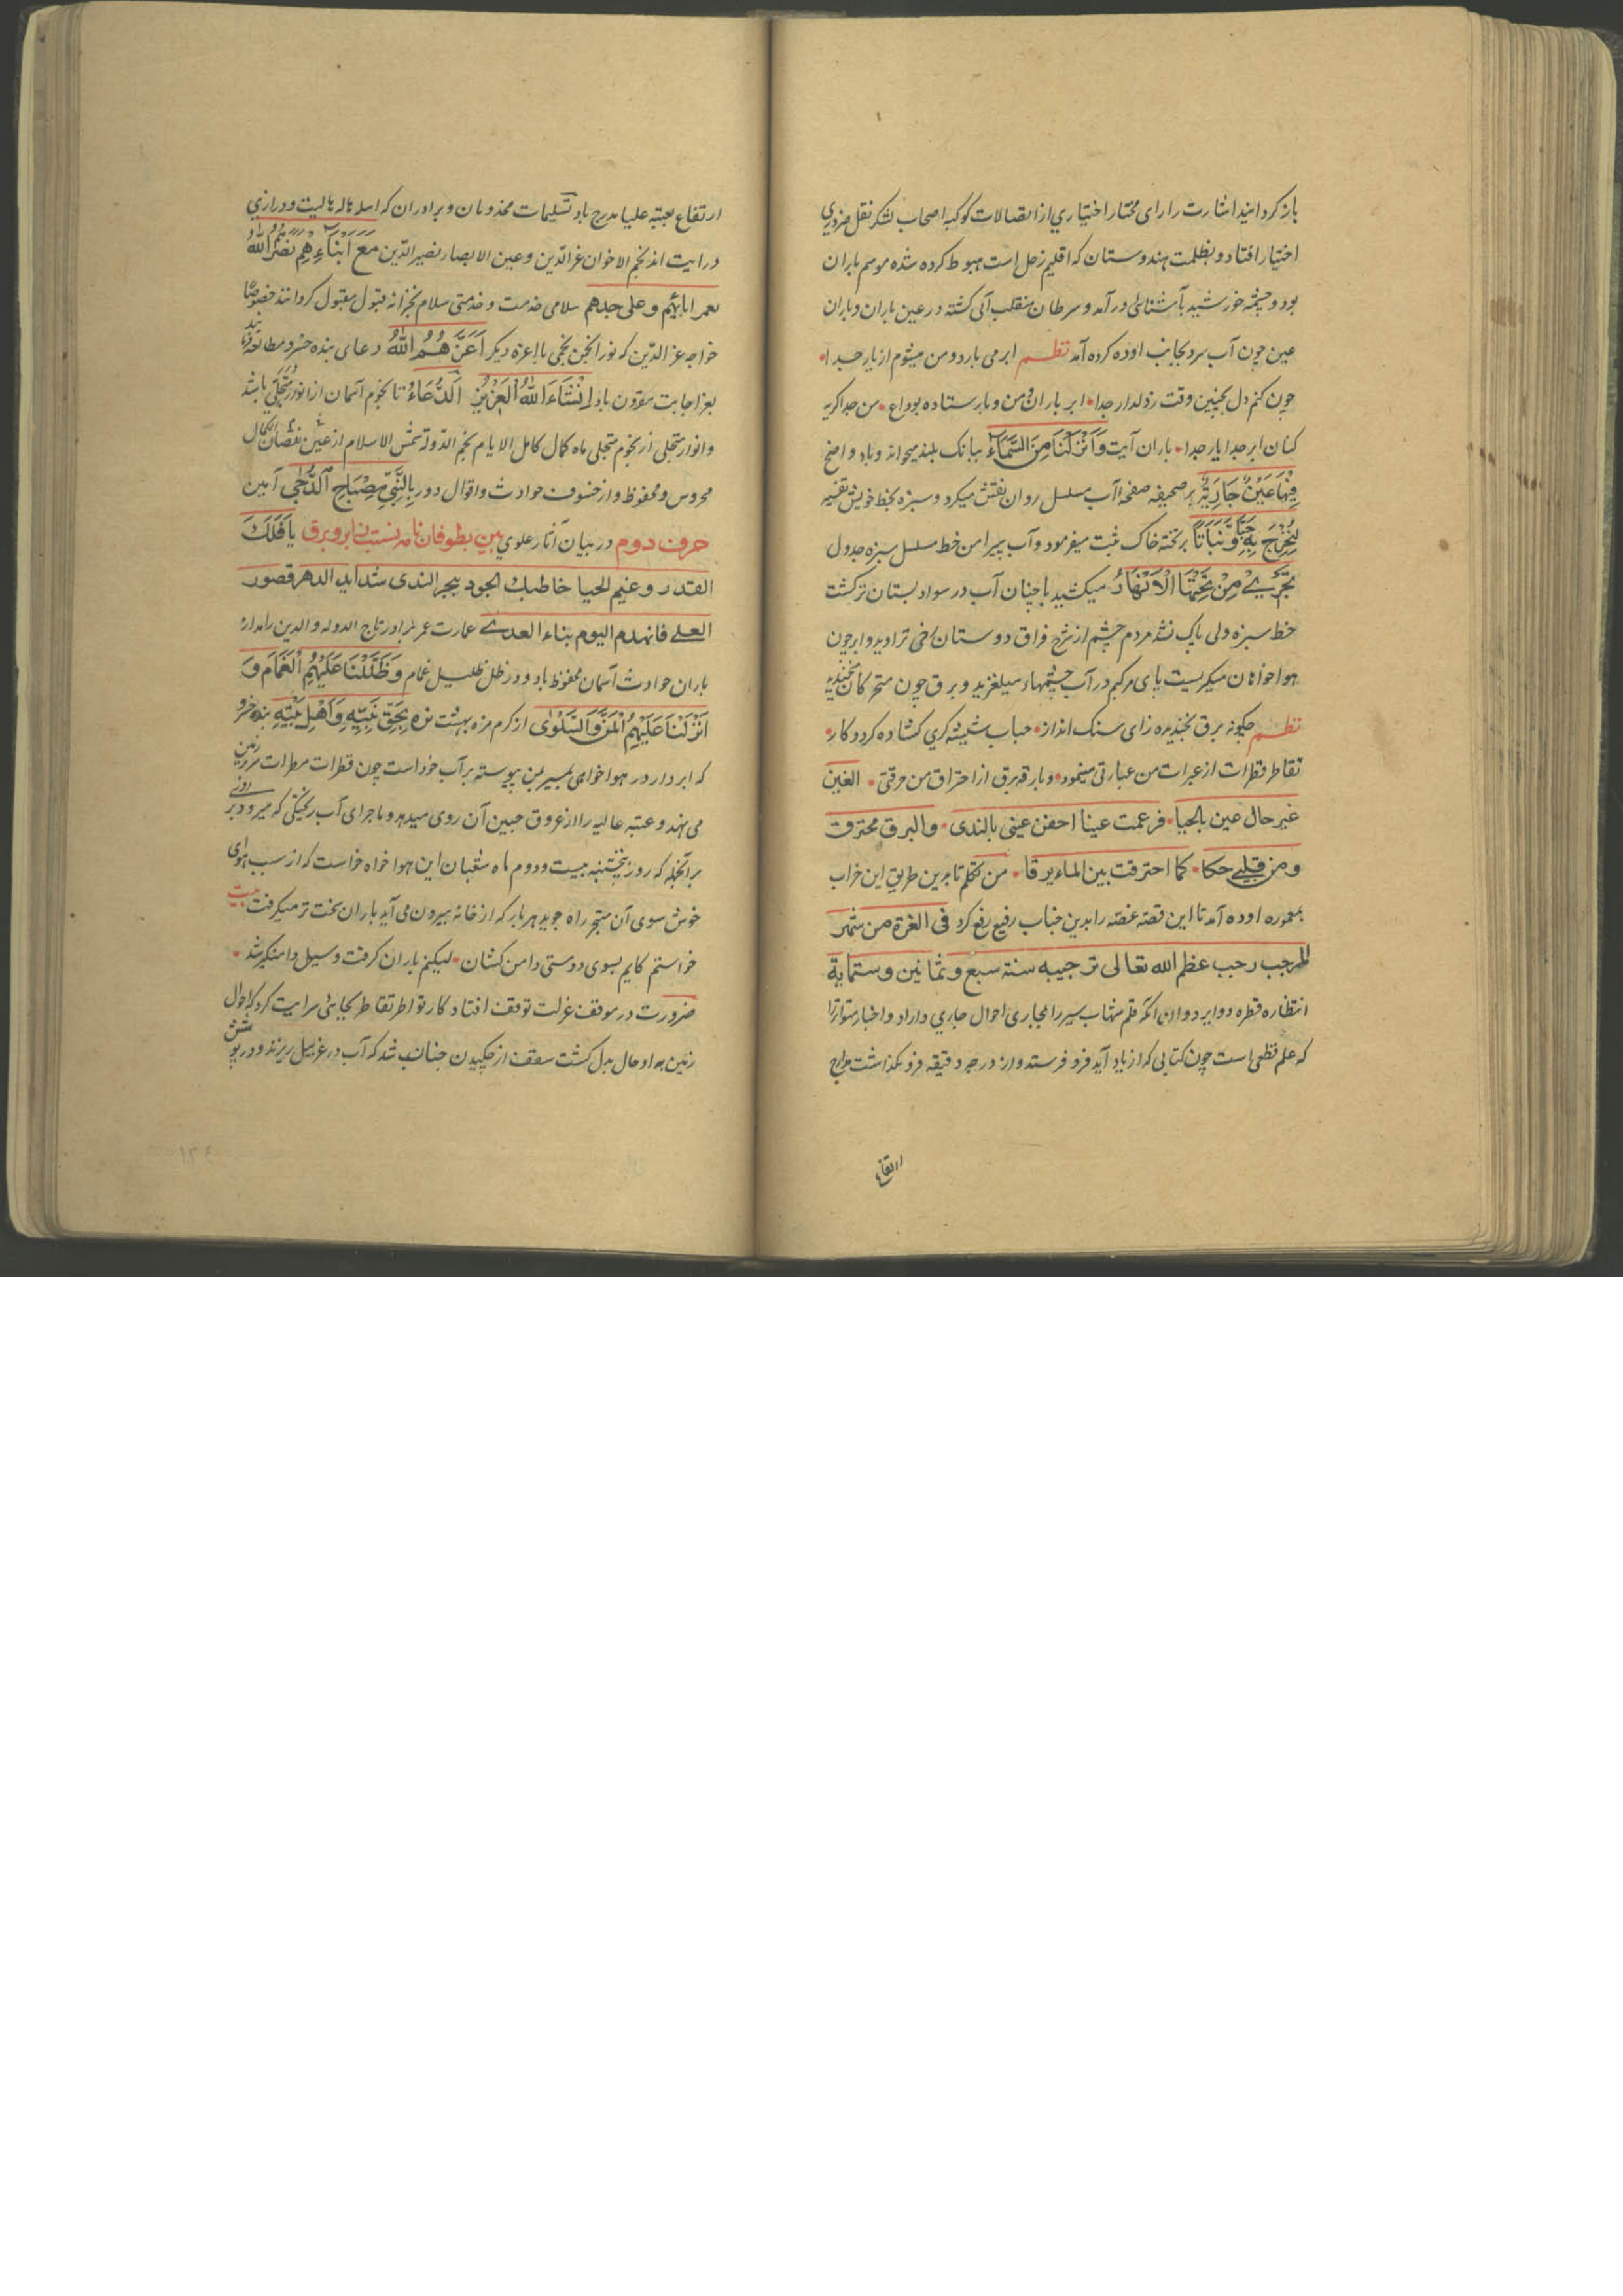 باز کردانید اشارت رارای مختار اختیاری از اتصالات کوکبه اصحاب لشکر نقل ضروری
اختیار افتاد و بظلمت هندوستان که اقلیم زحل است هبوط کرده شده موسم باران
بود و چشمه خورشید بآشنائی درآمد و سرطان منقلب آبی کشته در عین باران و باران
عین چون آب سرد بجانب اوده کرده آمد نظم ابر می بارد و من میشوم از یار جدا
چون کنم دل بچنین وقت ز دلدار جدا ابر باران و من و یار ستاده بوداع من جدا کریه
کنان ابر جدا یار جدا باران آیت وَاَنْزَلْنَا مِنَ السَّمَاءِ ببانک بلند میخواند و باد واضح
فِیْهَا عَیْنٌ جَارِیَةٌ بر صحیفه صفحه آب مسلسل روان نقش میکرد و سبزه بخط خویش تفسیر
لِنُخْرِجَ بِهٖ حَبًّا وَّنَبَاتًا بر تخته خاک ثبت میفرمود و آب پیرامن خط مسلسل سبزه جدول
تَجْرِیْ مِنْ تَحْتِهَا الْاَنْهَارُ میکشید باچنان آب در سواد بستان تر کشت
خط سبزه ولی پاک نشد مردم چشم از شرح فراق دوستان خی ترادید و ابر چون
هواخواهان میکریست پای مرکبم در آب چشمهاء میلغزید و برق چون متحرکان میخندید
نظم چکونه برق بخندیده زای سنک انداز حباب شیشه کری کشاده کرد و کار
تقاطر قطرات از عبرات من عبارتی مینمود و بارقه برق از احتراق من حرقتی الغین
غیر حال عین بالحیا فزعمت عینا احفن عینی بالندی والبرق محترقت
ومن قلبی حکا کما احترقت بین الماء برقا من تکلم تا برین طریق این خراب
بمعموره اوده آمد تا این قصه غصه را بدین جناب رفیع رفع کرد فی الغرة من شهر
المرجب رجب عظم الله تعالی ترجیبه سنة سبع وثمانین وستمایة
انتظاره قطره دوایر دوات آنکه قلم سیر را مجاری احوال جاری دارد و اخبار متواتر را
که علم قطعی است چون کتابی که از یاد آید فرو فرستد و از درجه دقیقه فرو نکذاشت
ارتفاع
ارتفاع بعتبه علیا مدرج باد تسلیمات مخدومان و برادران که اسله ناله هالیت و دراری
درایت اند نجم الاخوان عز الدین و عین الابصار نصیر الدین مَعَ اَبْنَاءِهِمْ نَصَرَ اللهُ
بعمر ابائهم وعلی جدهم سلامی خدمت و خدمتی سلام بخزانه قبول مقبول کردانند خصوصًا
خواجه عز الدین که نور انجمن نجمی بااعزه دیکر اَعَزَّ هُمُ اللهُ دعای بنده خسرو مطالعه
بعز اجابت مقرون باد اِنْشَاءَ اللهُ الْعَزِیْزِ اَلدُّعَاءُ تا نجوم آسمان از انوار متجلی باشد
و انوار متجلی از نجوم متجلی ماه کمال کامل الایام نجم الدوله شمس الاسلام از عین نقصان کمال
محروس و محفوظ و از خسوف حوادث و اقوال دور بِالنَّبِیِّ مِصْبَاحِ الدُّجٰی آمین
حرف دوم در بیان آثار علوی بین بطوفان نامه نسبت بابر و برق یَا فَلَکَ
القدر وغیم الحیا خاطبك الجود ببحر الندی شدایـد الدهر قصور
العلے فانهدم الیوم بناء العدے عمارت عمر برادر تاج الدوله والدین را مدار
باران حوادث آسمان محفوظ باد و در ظل ظلیل غمام وَظَلَّلْنَا عَلَیْهِمُ الْغَمَامَ وَ
اَنْزَلْنَا عَلَیْهِمُ الْمَنَّ وَالسَّلْوٰی از کرم مزه بهشت بزه بِحَقِّ نَبِیِّهٖ وَاَهْلِ بَیْتِهٖ بنده خسرو
که ابر دار در هواخوای بمسیر من پیوسته بر آب خود است چون قطرات مطرات سر بر زمین
می نهد و عتبه عالیه را از عروق جبین آن روی میدهد و ماجرای آب ریختکی که میرود بر
برآنجمله که روز پنجشنبه بیست و دوم ماه شعبان این هوا خواه خواست که از سبب هوای
خوش سوی آن متجر راه جوید هر بار که از خانه بیرون می آید باران سخت تر میکرفت بیت
خواستم کایم بسوی دوستی دامن کشان لیکنم باران کرفت و سیل دامنکیر شد
ضرورت در موقف عزلت توقف افتاد کار تواطر تقاطر بجائی سرایت کرد که احوال
زمین بداد حال بدل کشت سقف از چکیدن چنان شد که آب در غربیل ریزند و در پوشش